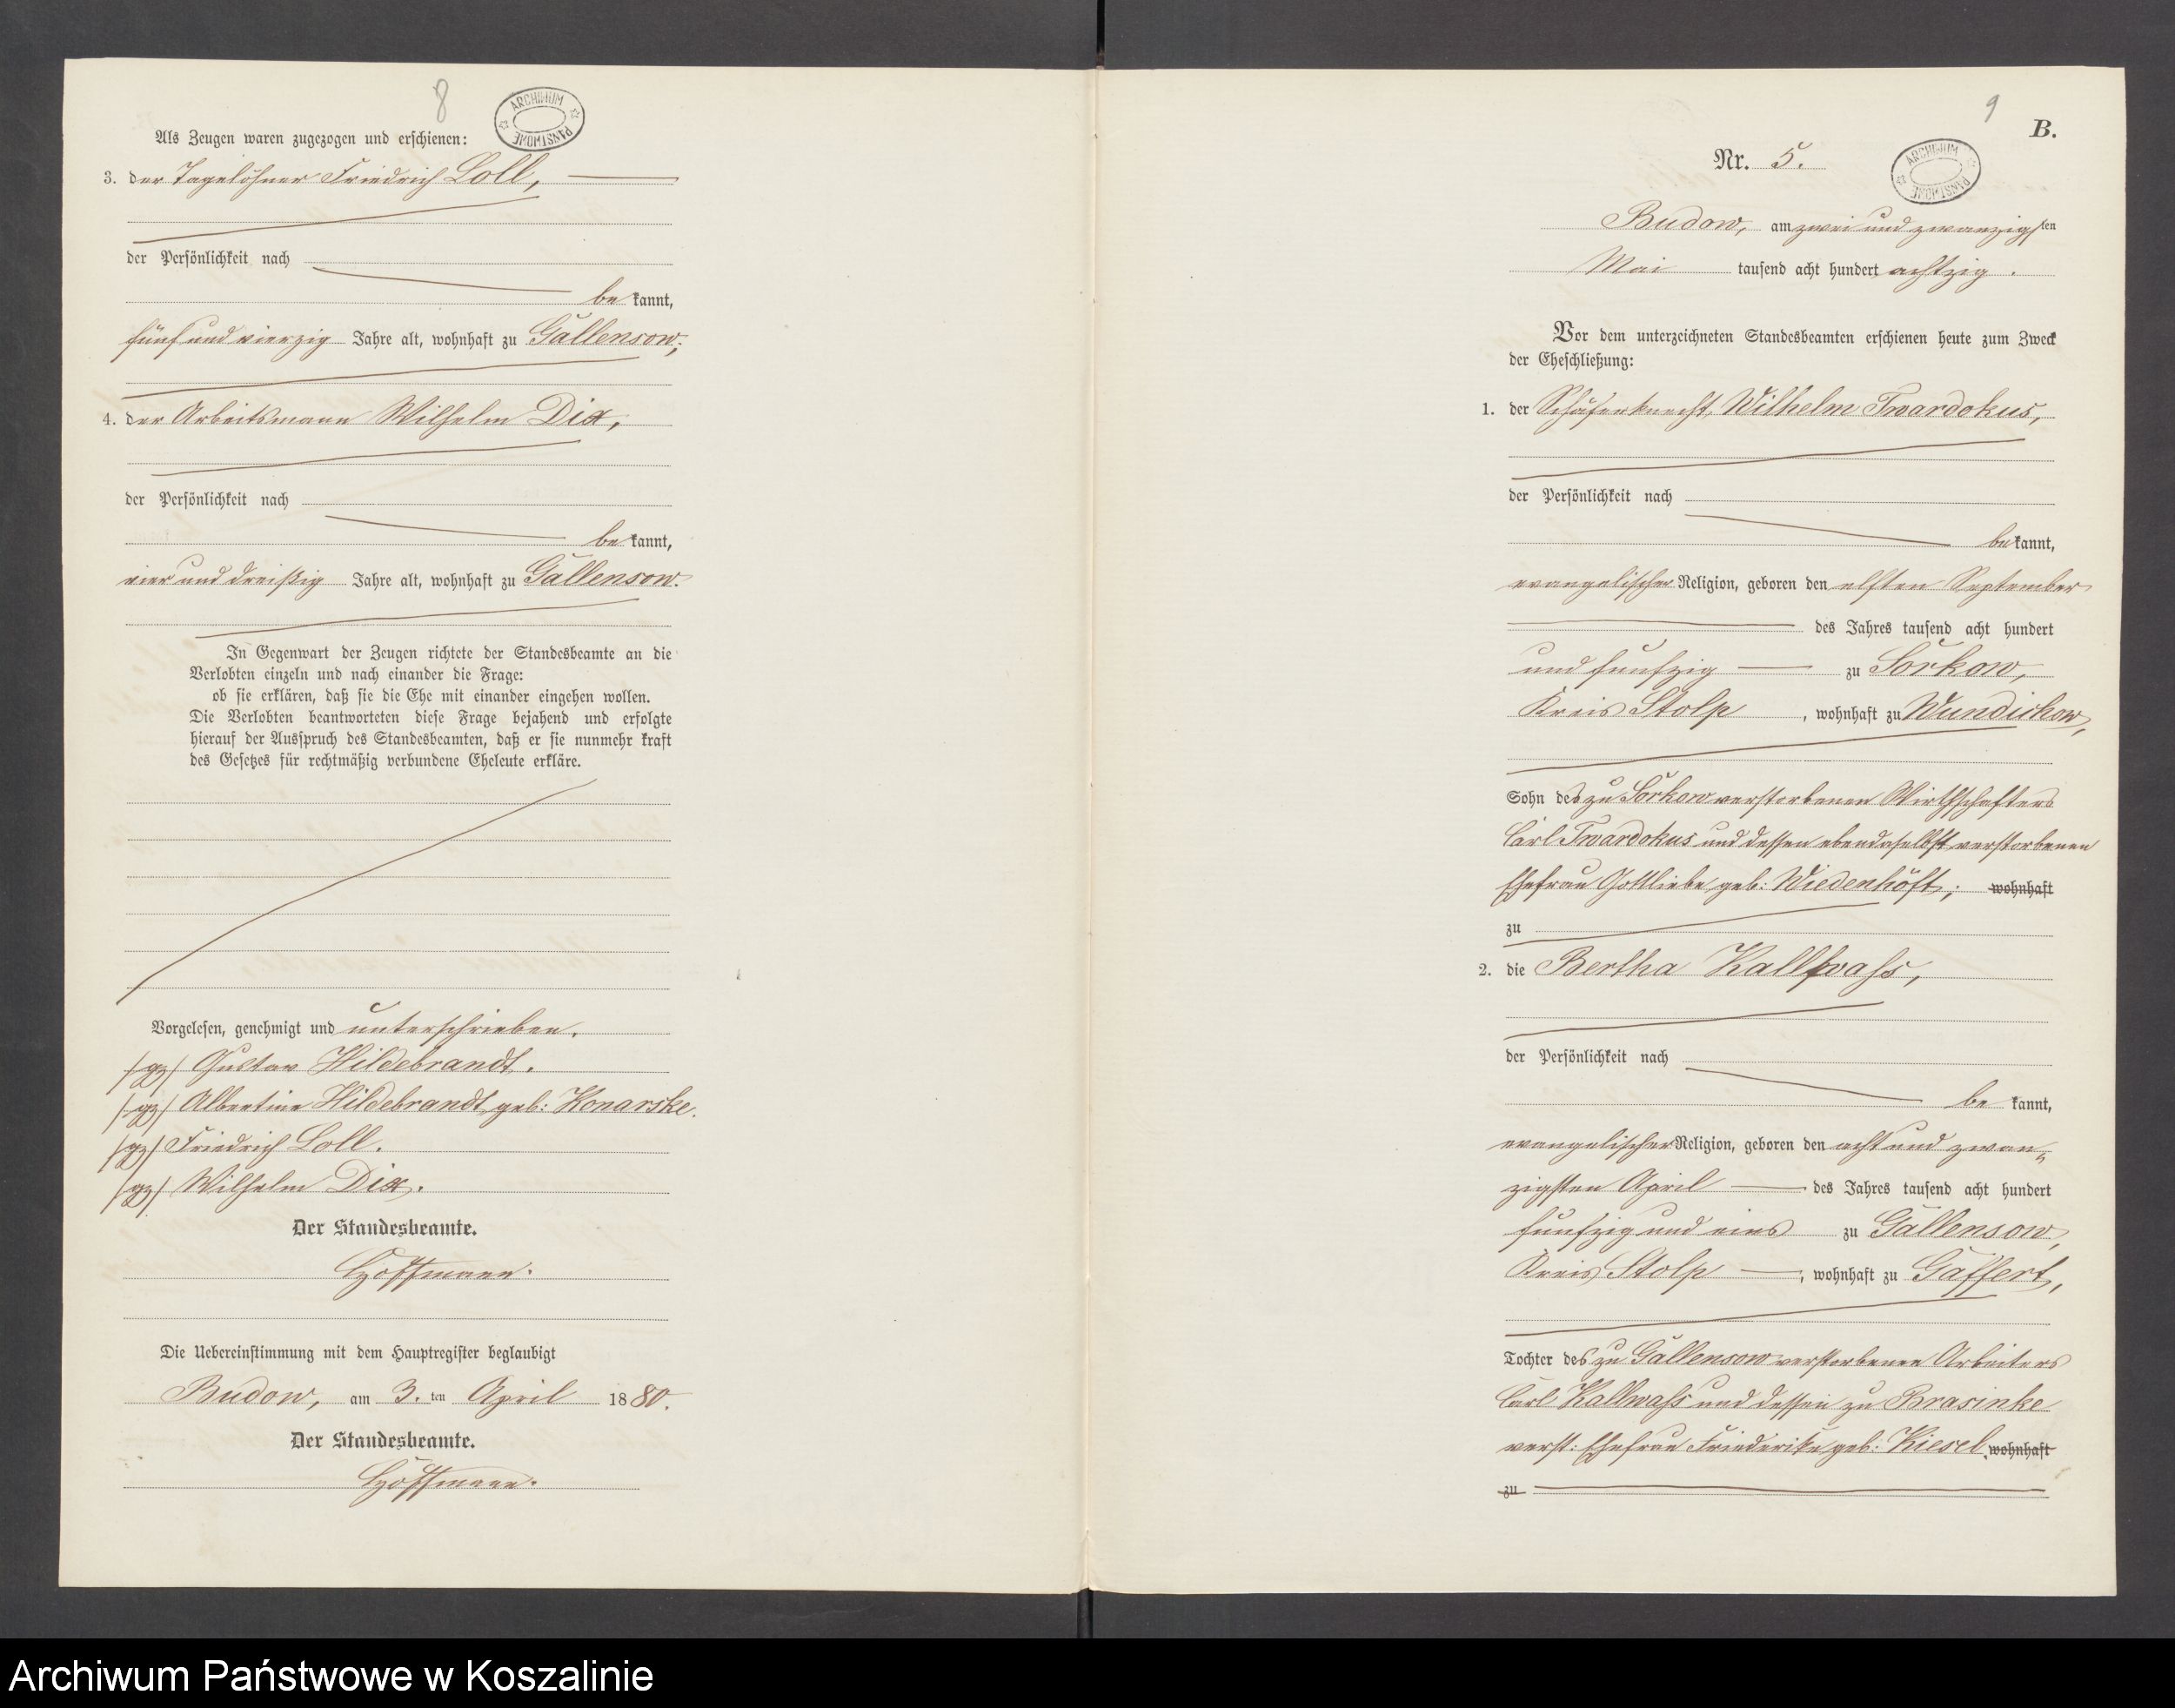 8
ARCHIWUM PAŃSTWOWE
Als Zeugen waren zugezogen und erschienen:
3. der Tagelöhner Friedrich Loll,
der Persönlichkeit nach
be kannt,
fünf und vierzig Jahre alt, wohnhaft zu Gallensow;
4. der Arbeitsmann Wilhelm Dix,
der Persönlichkeit nach
be kannt,
vier und dreißig Jahre alt, wohnhaft zu Gallensow.
In Gegenwart der Zeugen richtete der Standesbeamte an die
Verlobten einzeln und nach einander die Frage:
ob sie erklären, daß sie die Ehe mit einander eingehen wollen.
Die Verlobten beantworteten diese Frage bejahend und erfolgte
hierauf der Ausspruch des Standesbeamten, daß er sie nunmehr kraft
des Gesetzes für rechtmäßig verbundene Eheleute erkläre.
Vorgelesen, genehmigt und unterschrieben.
/gz/ Gustav Hildebrandt.
/gz/ Albertine Hildebrandt geb: Konarske.
/gz/ Friedrich Loll.
/gz/ Wilhelm Dix.
Der Standesbeamte.
Hoffmann.
Die Uebereinstimmung mit dem Hauptregister beglaubigt
Budow, am 3. ten April 1880.
Der Standesbeamte.
Hoffmann.
9
B.
Nr. 5.
ARCHIWUM PAŃSTWOWE
Budow, am zwei und zwanzigsten
Mai tausend acht hundert achtzig.
Vor dem unterzeichneten Standesbeamten erschienen heute zum Zweck
der Eheschließung:
1. der Schäferknecht Wilhelm Twardokus,
der Persönlichkeit nach
be kannt,
evangelischer Religion, geboren den elften September
des Jahres tausend acht hundert
und funfzig zu Sorkow,
Kreis Stolp, wohnhaft zu Wundichow,
Sohn des zu Sorkow verstorbenen Wirthschafters
Carl Twardokus und dessen ebendaselbst verstorbenen
Ehefrau Gottliebe geb: Wiedenhöft; wohnhaft
zu
2. die Bertha Kallwahs,
der Persönlichkeit nach
be kannt,
evangelischer Religion, geboren den acht und zwan-
zigsten April des Jahres tausend acht hundert
funfzig und eins zu Gallensow,
Kreis Stolp, wohnhaft zu Gaffert,
Tochter des zu Gallensow verstorbenen Arbeiters
Carl Kallwahs und dessen zu Brasinke
verst: Ehefrau Friederike geb: Kiesel wohnhaft
zu
Archiwum Państwowe w Koszalinie